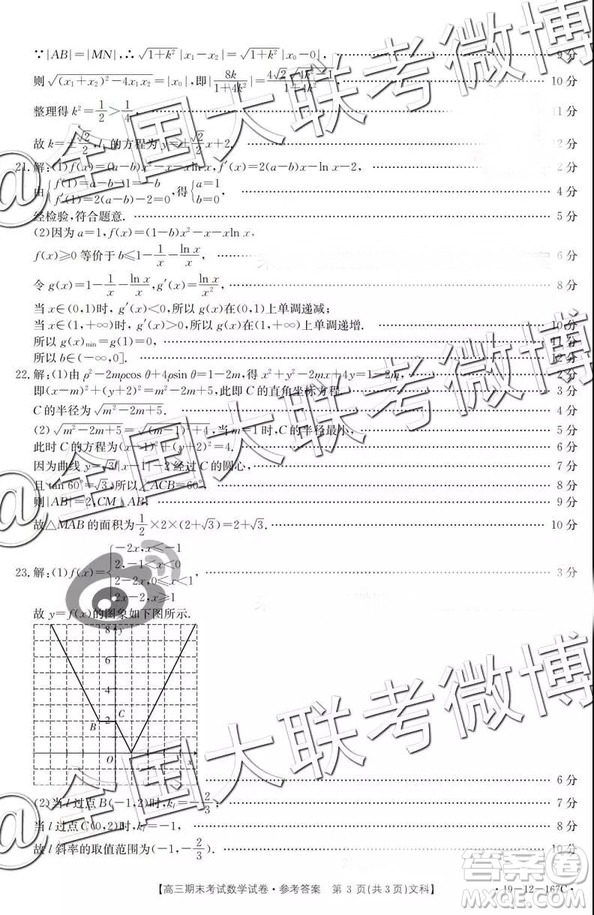 ∵|AB|=|MN|,∴√(1+k²)|x₁-x₂|=√(1+k²)|x₀-0|, 9分
则√((x₁+x₂)²-4x₁x₂)=|x₀|,即|8k/(1+4k²)|= 10分
整理得k²=1/2>1/4, 11分
故k=±√2/2, l的方程为y=±√2/2x+2. 12分
21.解:(1)f(x)=(a-b)x²-x-xln x,f′(x)=2(a-b)x-ln x-2, 2分
由{f(1)=a-b-1=0 f′(1)=2(a-b)-2=0,得{a=1 b=0 4分
经检验,符合题意. 5分
(2)因为a=1,f(x)=(1-b)x²-x-xln x
f(x)≥0等价于b≤1-1/x-ln x/x 6分
令g(x)=1-1/x-ln x/x,g′(x)=ln x/x², 8分
当x∈(0,1)时,g′(x)<0,所以g(x)在(0,1)上单调递减;
当x∈(1,+∞)时,g′(x)>0,所以g(x)在(1,+∞)上单调递增. 10分
所以g(x)min=g(1)=0,
所以b∈(-∞,0]. 12分
22.解:(1)由ρ²-2mρcos θ+4ρsin θ=1-2m,得x²+y²-2mx+4y=1-2m, 2分
即(x-m)²+(y+2)²=m²-2m+5,此即C的直角坐标方程. 3分
C的半径为√(m²-2m+5). 4分
(2)√(m²-2m+5)=√((m-1)²+4),当m=1时,C的半径最小, 5分
此时C的方程为(x-1)²+(y+2)²=4. 6分
因为曲线y=√3|x-1|-2经过C的圆心, 7分
且tan 60°=√3,所以∠ACB=60°. 8分
则|AB|=2,CM⊥AB, 9分
故△MAB的面积为1/2×2×(2+√3)=2+√3. 10分
23.解:(1)f(x)={-2x,x≤-1 2,-1<x≤0 2-2x,0<x<1, 2x-2,x≥1 3分
故y=f(x)的图象如下图所示.
8 y
6
4
B 2 C
O x
6分
(2)当l过点B(-1,2)时,kl=-2/3; 7分
当l过点C(0,2)时,kl=-1, 8分
故l斜率的取值范围为(-1,-2/3). 10分
【高三期末考试数学试卷·参考答案 第3页(共3页)文科】
·19-12-167C·
@全国大联考微博
@全国大联考微博
答案圈